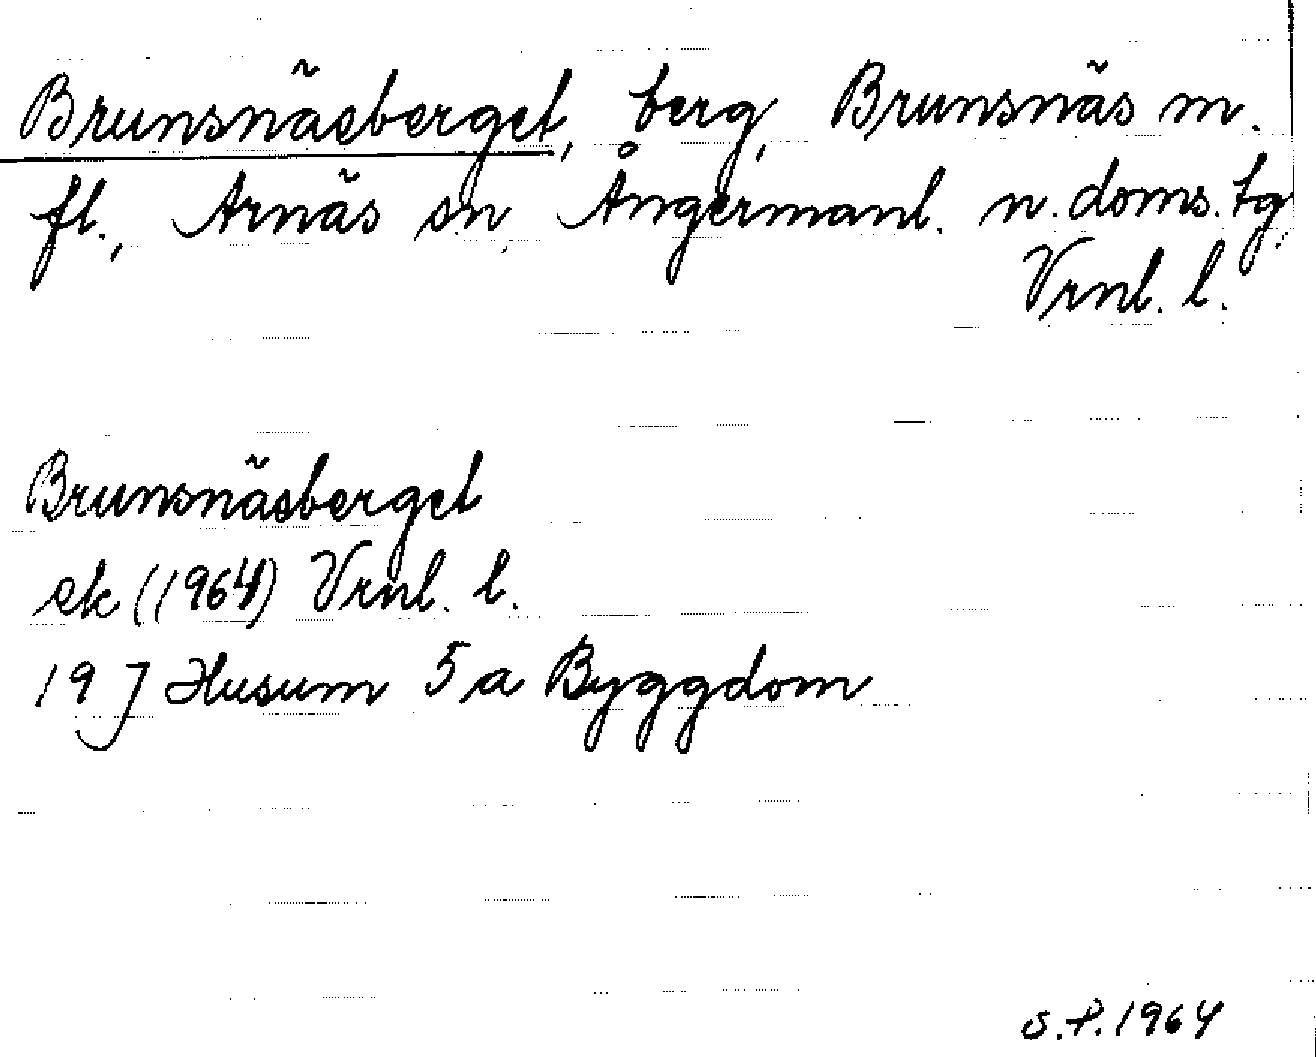 Brunsnäsberget, berg, Brunsnäs m.
fl., Arnäs sn, Ångermanl. n. doms. tg,
Vrnl. l.
Brunsnäsberget
ek (1964) Vrnl. l.
19 J Husum 5 a Byggdom
S.P. 1964